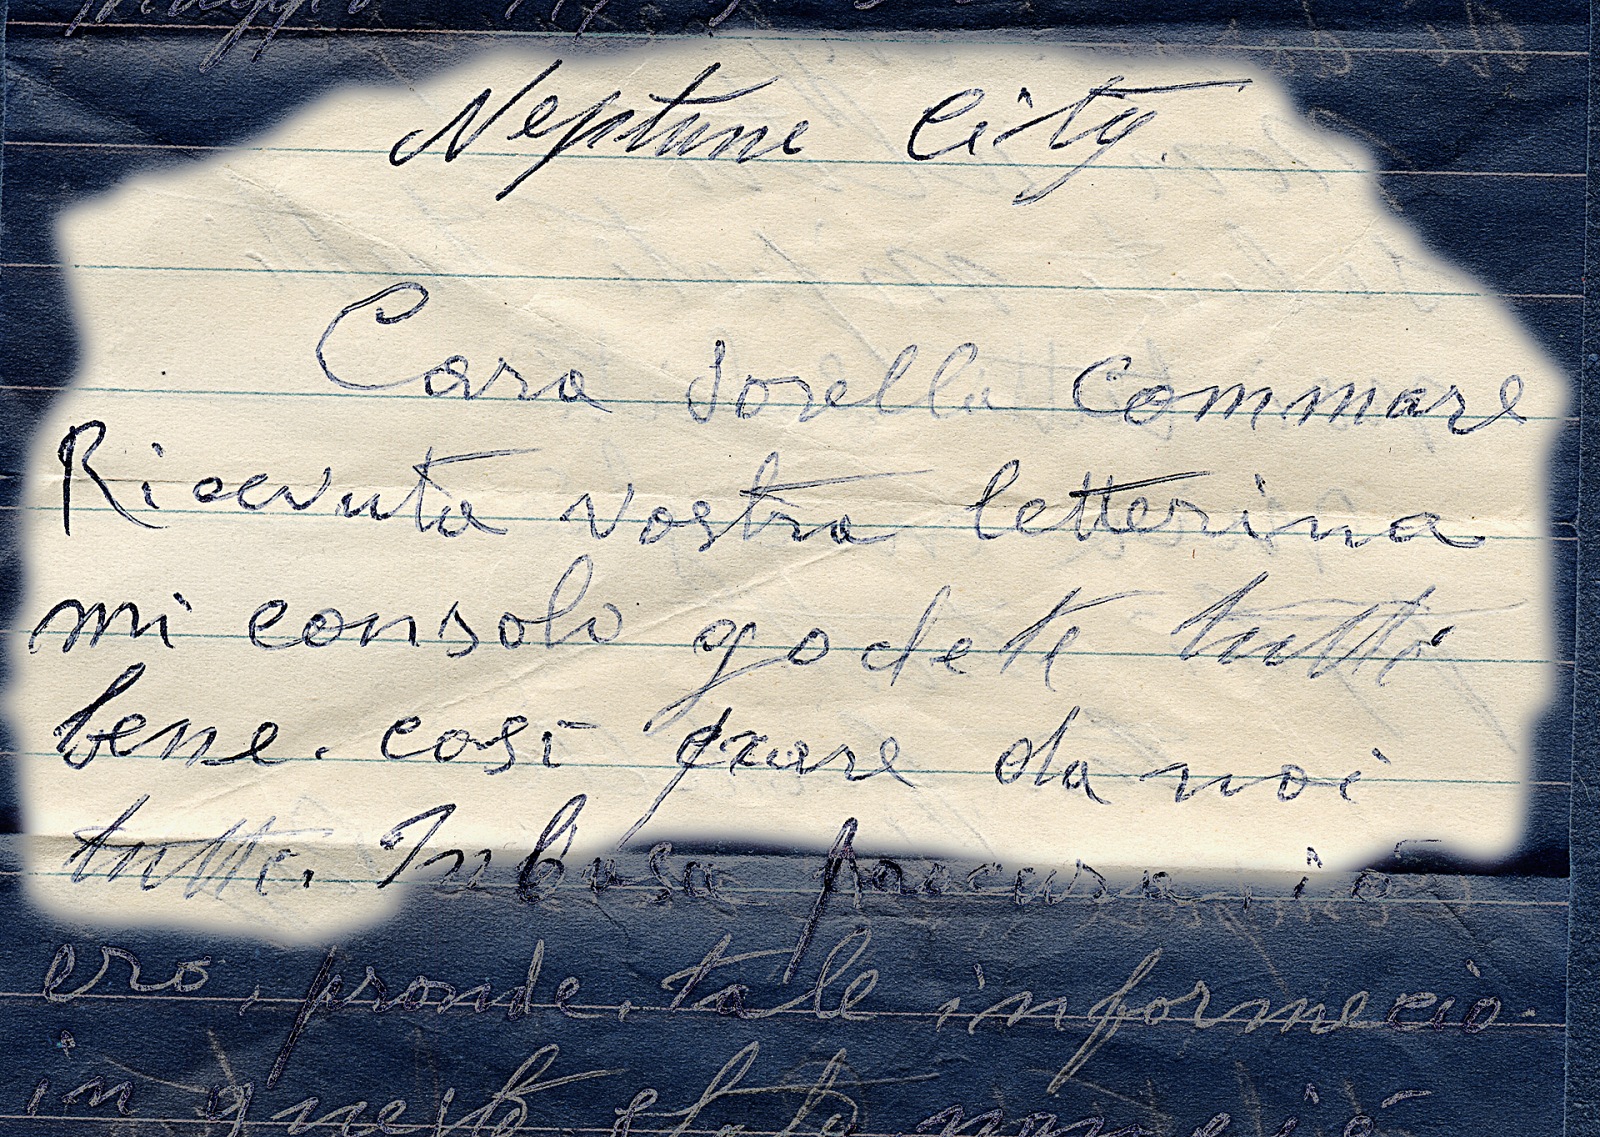 Neptune City.
Cara Sorella Commare
Ricevuta vostra letterina
mi consolo godete tutti
bene. così pare da noi
tutti. In busa procura, iò
ero, pronde, tale informecio.
in questo stato non ciò